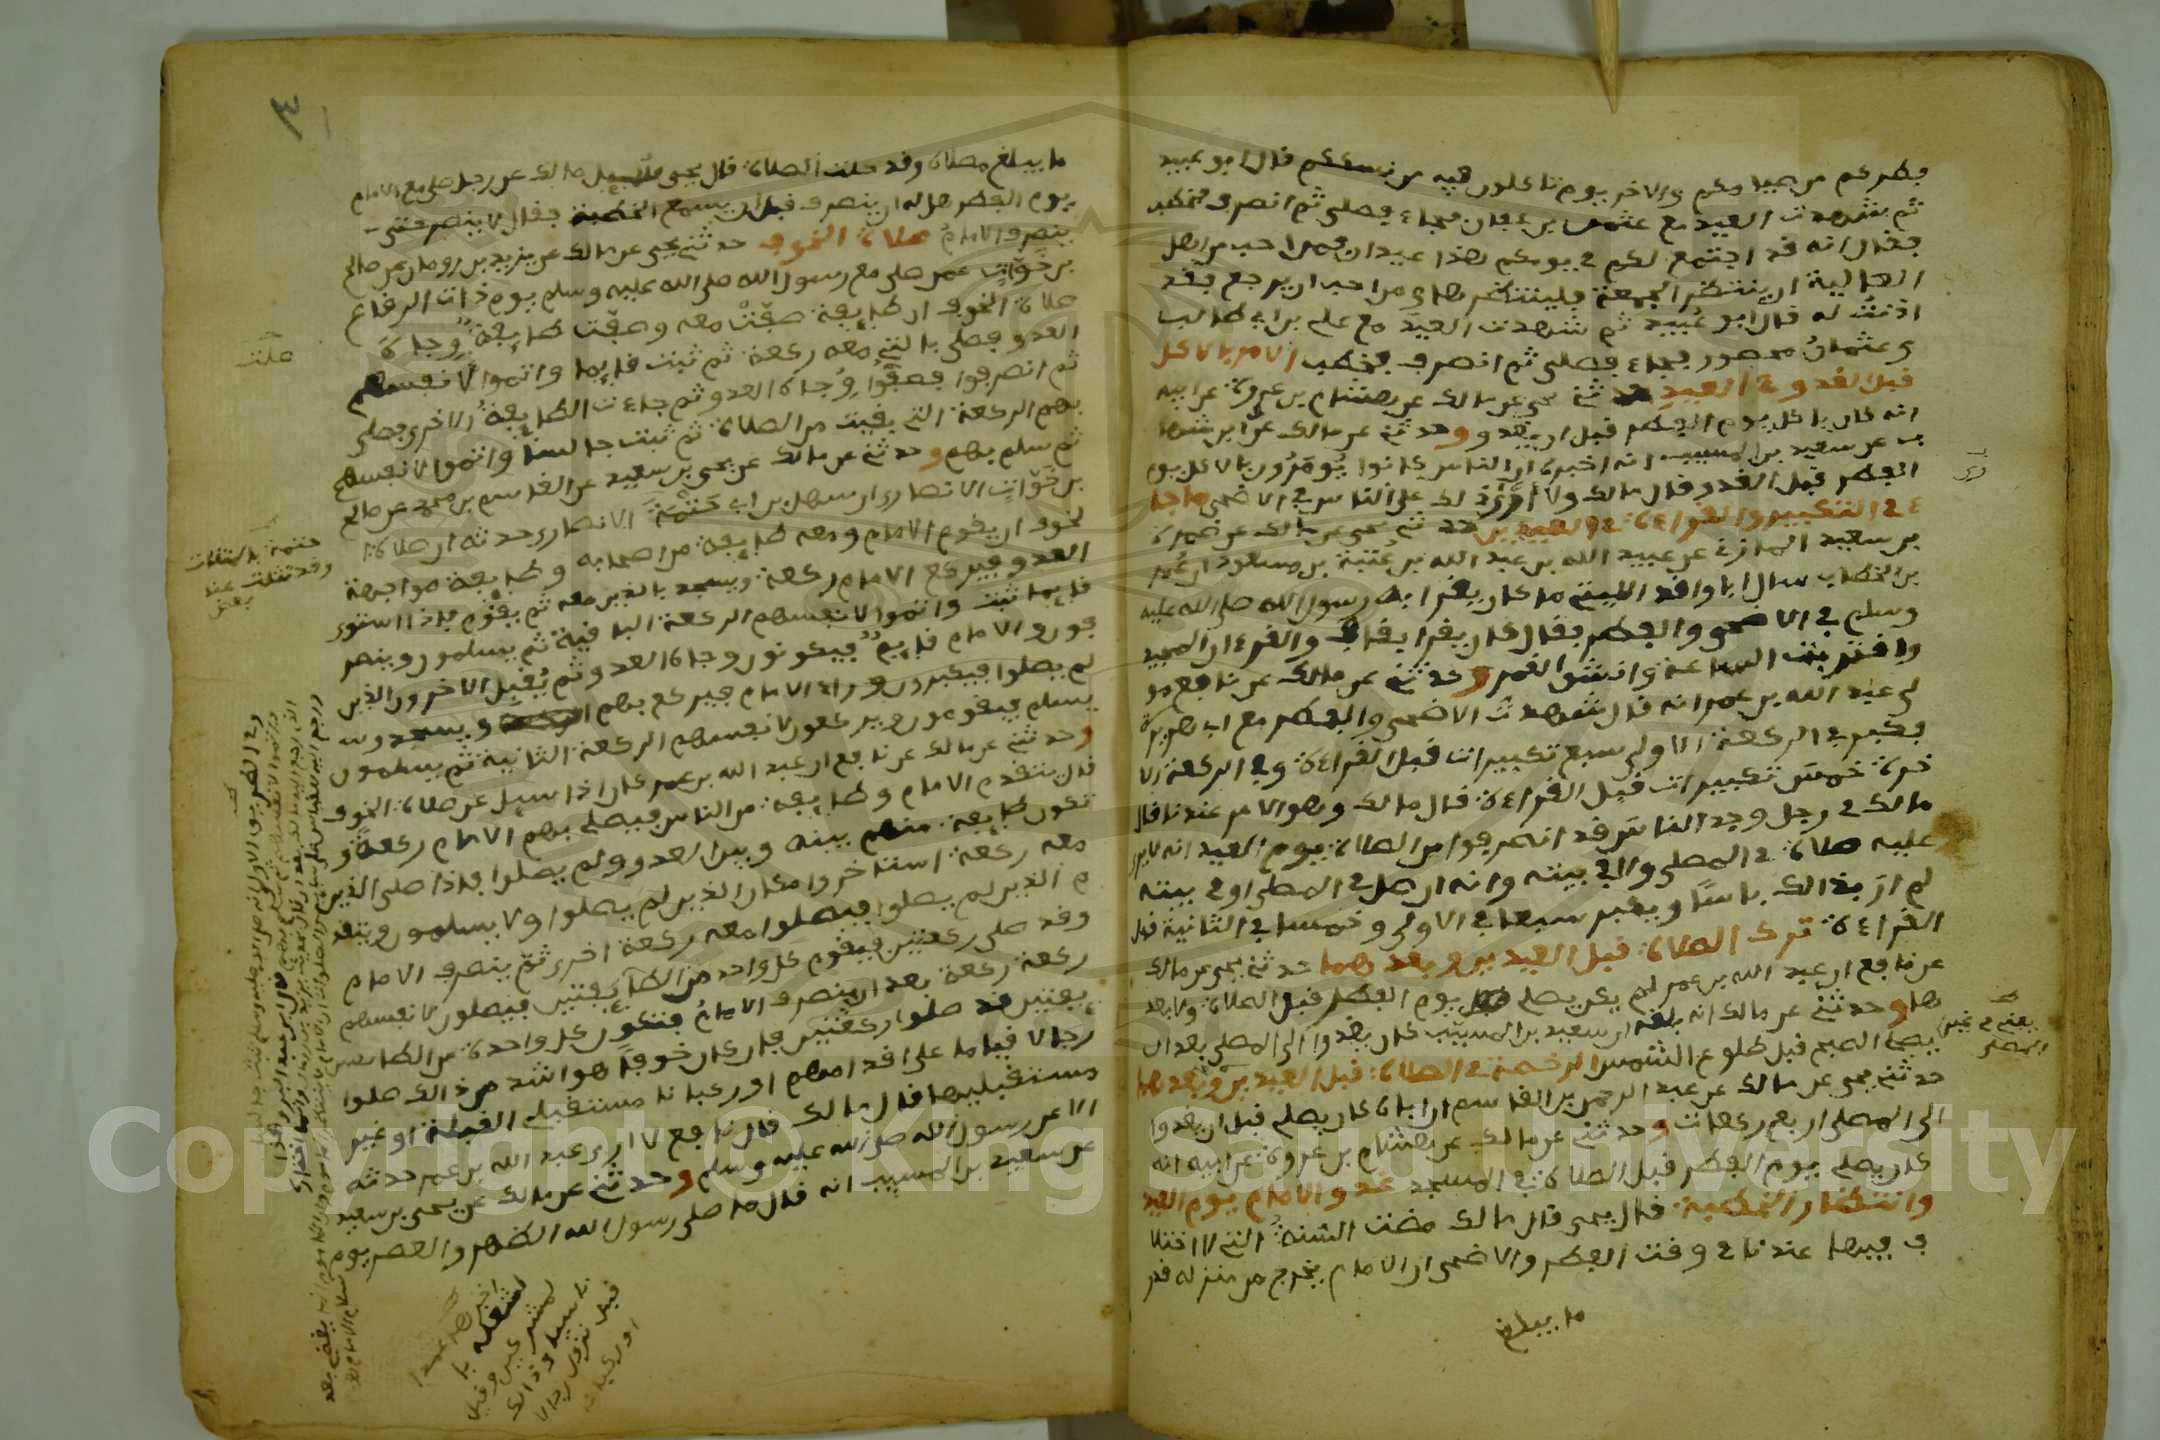 فطركم من صيامكم والاخر يوم تاكلون فيه من نسككم قال ابو عبيد
ثم شهدت العيد مع عثمن بن عفان فجاء فصلى ثم انصرف فخطب
فقال انه قد اجتمع لكم في يومكم هذا عيدان فمن احب من اهل
العالية ان ينتظر الجمعة فلينتظرها ومن احب ان يرجع فقد
اذنت له قال ابو عبيد ثم شهدت العيد مع علي بن ابي طالب
وعثمان محصور فجاء فصلى ثم انصرف فخطب الامر بالاكل
قبل الغدو في العيد حدثني يحيى عن مالك عن هشام بن عروة عن ابيه
انه كان ياكل يوم الفطر قبل ان يغدو وحدثني عن مالك عن ابن شها
ب عن سعيد بن المسيب انه اخبره ان الناس كانوا يومرون بالاكل يوم
الفطر قبل الغدو قال مالك ولا ارى ذلك على الناس في الاضحى ماجا
ء في التكبير والقراءة في العيدين حدثني يحيى عن مالك عن ضمرة
بن سعيد المازني عن عبيد الله بن عبد الله بن عتبة بن مسعود ان عمر
بن الخطاب سال ابا واقد الليثي ما كان يقرا به رسول الله صلى الله عليه
وسلم في الاضحى والفطر فقال كان يقرا بقاف والقرءان المجيد
واقتربت الساعة وانشق القمر وحدثني عن مالك عن نافع مو
لى عبد الله بن عمر انه قال شهدت الاضحى والفطر مع ابي هريرة
فكبر في الركعة الاولى سبع تكبيرات قبل القراءة وفي الركعة الا
خرة خمس تكبيرات قبل القراءة قال مالك وهو الامر عندنا قال
مالك في رجل وجد الناس قد انصرفوا من الصلاة يوم العيد انه لا يرى
عليه صلاة في المصلى ولا في بيته وانه ان صلى في المصلى او في بيته
لم ار بذالك باسا ويكبر سبعا في الاولى وخمسا في الثانية قبل
القراءة ترك الصلاة قبل العيدين وبعدهما حدثني يحيى عن مالك
عن نافع ان عبد الله بن عمر لم يكن يصلي يوم الفطر قبل الصلاة ولا بعد
ها وحدثني عن مالك انه بلغه ان سعيد بن المسيب كان يغدوا الى المصلى بعد ان
يصلي الصبح قبل طلوع الشمس الرخصة في الصلاة قبل العيدين وبعدهما
يعني في غير
المصلى
حدثني يحيى عن مالك عن عبد الرحمن بن القاسم ان اباه كان يصلي قبل ان يغدوا
الى المصلى اربع ركعات وحدثني عن مالك عن هشام بن عروة عن ابيه انه
كان يصلي يوم الفطر قبل الصلاة في المسجد غدو الامام يوم العيد
وانتظار الخطبة قال يحيى قال مالك مضت السنة التي لا اختلا
ف فيها عندنا في وقت الفطر والاضحى ان الامام يخرج من منزله قدر
ما يبلغ
ما يبلغ مصلاه وقد حلت الصلاة قال يحيى سيل مالك عن رجل صلى مع الامام
يوم الفطر هل له ان ينصرف قبل ان يسمع الخطبة فقال لا ينصرف حتى
ينصرف الامام صلاة الخوف حدثني يحيى عن مالك عن يزيد بن رومان عن صالح
بن خوات عمن صلى مع رسول الله صلى الله عليه وسلم يوم ذات الرقاع
صلاة الخوف ان طايفة صفت معه وصفت طايفة وجاه
صلت
العدو فصلى بالتي معه ركعة ثم ثبت قايما واتموا لانفسهم
ثم انصرفوا فصفوا وجاه العدو ثم جاءت الطايفة الاخرى فصلى
بهم الركعة التي بقيت من الصلاة ثم ثبت جالسا واتموا لانفسهم
ثم سلم بهم وحدثني عن مالك عن يحيى بن سعيد عن القاسم بن محمد عن صالح
بن خوات الانصاري ان سهل بن ابي حثمة الانصاري حدثه ان صلاة ا
حثمة بالمثلثات
وقد تثلث عند
بعض
لخوف ان يقوم الامام ومعه طايفة من اصحابه وطايفة مواجهة
العدو فيركع الامام ركعة ويسجد بالذين معه ثم يقوم فاذا استوى
قايما ثبت واتموا لانفسهم الركعة الباقية ثم يسلمون وينصر
فون والامام قايم فيكونون وجاه العدو ثم يقبل الاخرون الذين
لم يصلوا فيكبرون وراء الامام فيركع بهم ويسجد ثم
يسلم فيقومون ويركعون لانفسهم الركعة الثانية ثم يسلمون
وحدثني عن مالك عن نافع ان عبد الله بن عمر كان اذا سيل عن صلاة الخوف
قال يتقدم الامام وطايفة من الناس فيصلي بهم الامام ركعة و
تكون طايفة منهم بينه وبين العدو ولم يصلوا فاذا صلى الذين
معه ركعة استاخروا مكان الذين لم يصلوا ولا يسلمون ويتقد
م الذين لم يصلوا فيصلوا معه ركعة اخرى ثم ينصرف الامام
وقد صلى ركعتين فيقوم كل واحد من الطايفتين فيصلون لانفسهم
ركعة ركعة بعد ان ينصرف الامام فتكون كل واحدة من الطا
يفتين قد صلوا ركعتين فان كان خوفا هو اشد من ذالك صلوا
رجالا قياما على اقدامهم او ركبانا مستقبلي القبلة او غير
مستقبليها قال مالك قال نافع لا ارى عبد الله بن عمر حدثه
الا عن رسول الله صلى الله عليه وسلم وحدثني عن مالك عن يحيى بن سعيد
عن سعيد بن المسيب انه قال ما صلى رسول الله الظهر والعصر يوم
Copyright © King Saud University